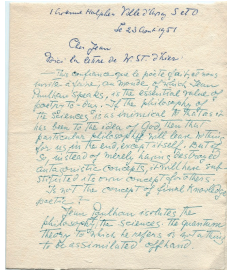 1 Avenue Halphen Ville d'Avray S et O
Le 23 Août 1951
Cher Jean
Voici la lettre de W. St. d'hier
the confidence that the poète
in the world of which Jean
Paulhan speaks, is the essential value of
poetry to-day. If the philosophy of
the sciences is as inimical to that as it
has been to the idea of God, then that
particular philosophy will leave nothing
for us in the end, except itself. But if
so, instead of merely having destroyed
antagonistic concepts, it will have sub
stituted its own concept of others.
Is not the concept of final knowledge
poetic?
Jean Paulhan isolates the
philosophy, the sciences. the quantum
theory to which he refers is nothing
to be assimilated offhand.